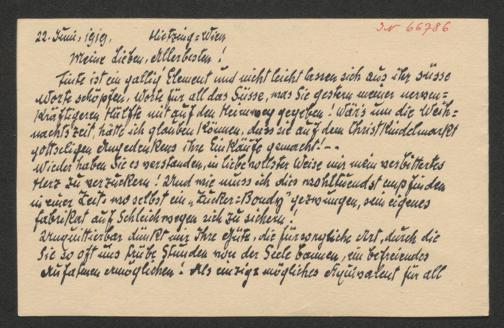 J.N 66786
22. Juni, 1919, Hietzing=Wien
Meine Lieben, Allerbesten!
Tinte ist ein gallig Element und nicht leicht lassen sich aus ihr süsse
Worte schöpfen, Worte für all das Süsse, was Sie gestern meiner nerven=
kräftigeren Hälfte mit auf den Heimweg gegeben! Wär's um die Weih=
nachtszeit, hätte ich glauben können, dass sie auf dem Christkindelmarkt
gottseligen Angedenkens ihre Einkäufe gemacht! - -
Wieder haben Sie es verstanden, in liebevollster Weise mir mein verbittertes
Herz zu verzuckern! Und wie muss ich dies wohltuendst empfinden
in einer Zeit, wo selbst ein "Zucker=Bondy" gezwungen, sein eigenes
Fabrikat auf Schleichwegen sich zu sichern!
Unquittierbar dünkt mir Ihre Güte, die fürsorgliche Art, durch die
Sie so oft uns trübe Stunden von der Seele bannen, ein befreiendes
Aufatmen ermöglichen! Als einzig mögliches Äquivalent für all